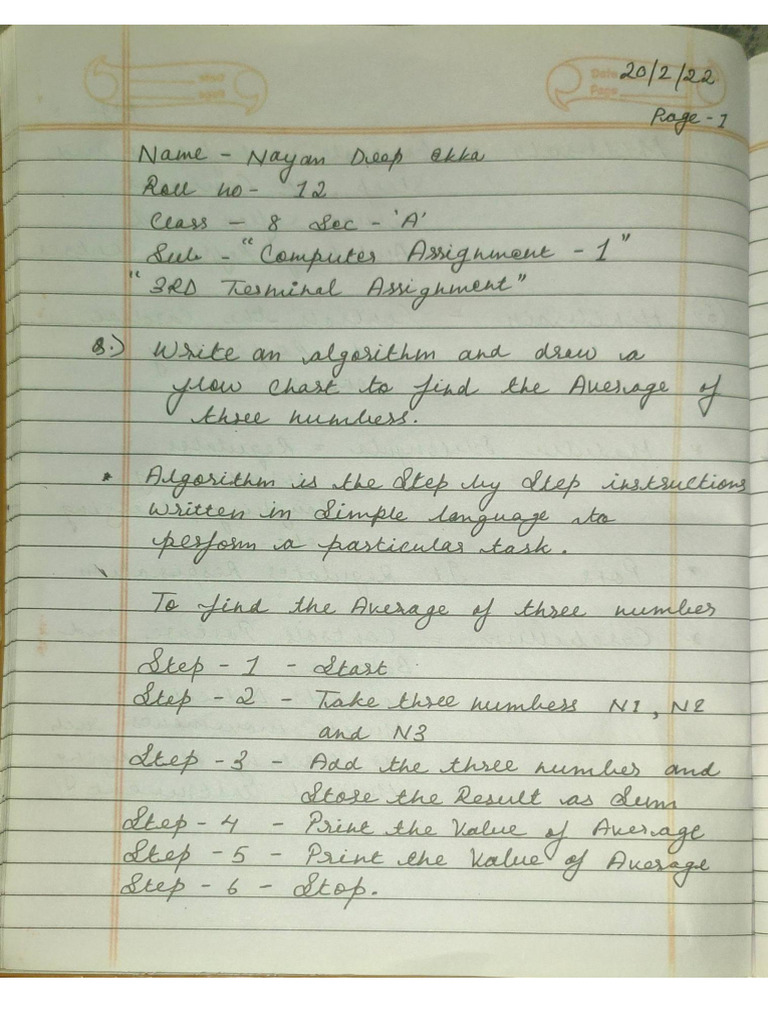 Date 20/2/22
Page
Page - 1
Name - Nayan Deep Ekka
Roll no - 12
Class - 8 Sec - 'A'
Sub - "Computer Assignment - 1"
"3RD Terminal Assignment"
Q.) Write an algorithm and draw a
flow chart to find the Average of
three numbers.
* Algorithm is the Step by Step instructions
written in Simple language to
perform a particular task.
To find the Average of three number
Step - 1 - Start
Step - 2 - Take three numbers N1, N2
and N3
Step - 3 - Add the three number and
Store the Result as Sum
Step - 4 - Print the Value of Average
Step - 5 - Print the Value of Average
Step - 6 - Stop.